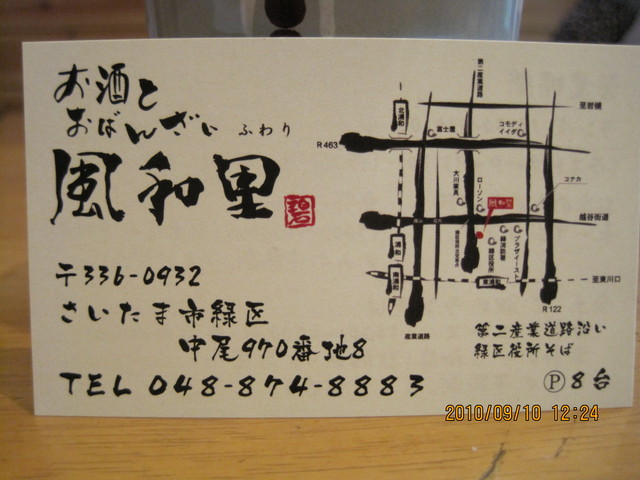 お酒と
おばんざい ふわり
風和里
〒336-0932
さいたま市緑区
中尾970番地8
TEL 048-874-8883
第二産業道路
至岩槻
北浦和
富士屋
コモディ
イイダ
R463
コナカ
大川家具
ローソン
風和里
越谷街道
浦和
緑消防署
緑区役所
プラザイースト
南浦和
東浦和
至東川口
R122
産業道路
第二産業道路沿い
緑区役所そば
Ⓟ8台
2010/09/10 12:24